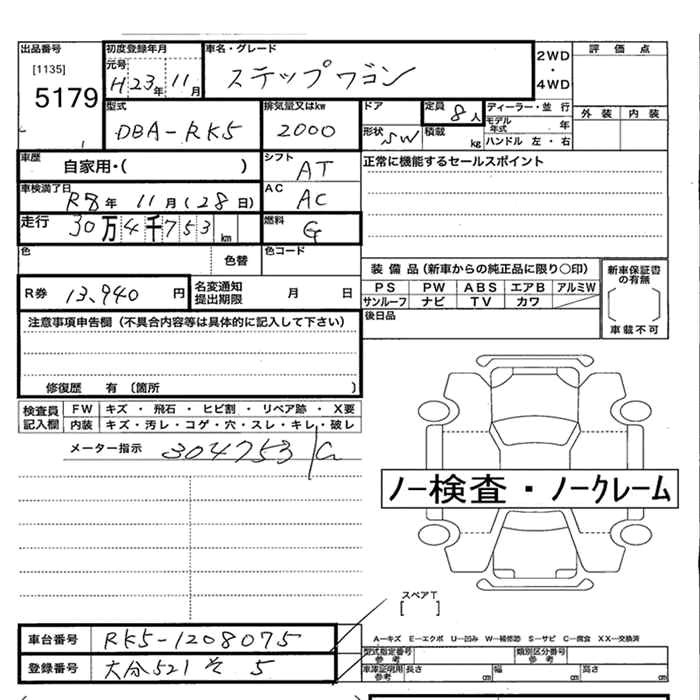 出品番号
[1135]
5179
初度登録年月
元号
H23年11月
車名・グレード
ステップワゴン
2WD
・
4WD
評価点
外装 内装
型式
DBA-RK5
排気量又はkw
2000
ドア
形状 SW
定員
8人
積載
kg
ディーラー・並行
モデル年式 年
ハンドル 左・右
車歴
自家用・( )
シフト
AT
正常に機能するセールスポイント
車検満了日
R8年11月(28日)
AC
AC
走行
30万4千753km
燃料
G
色
色替
色コード
R券 13,940円
名変通知
提出期限 月 日
装備品(新車からの純正品に限り○印)
PS PW ABS エアB アルミW
サンルーフ ナビ TV カワ
新車保証書
の有無
車載不可
後日品
注意事項申告欄(不具合内容等は具体的に記入して下さい)
修復歴 有 〔箇所 〕
検査員
記入欄
FW キズ・飛石・ヒビ割・リペア跡・X要
内装 キズ・汚レ・コゲ・穴・スレ・キレ・破レ
メーター指示 304753
ノー検査・ノークレーム
スペアT
[ ]
車台番号 RK5-1208075
登録番号 大分521 そ 5
A―キズ E―エクボ U―凹み W―補修跡 S―サビ C―腐食 XX―交換済
型式指定番号
参考
類別区分番号
参考
車庫証明用
参考
長さ cm 幅 cm 高さ cm